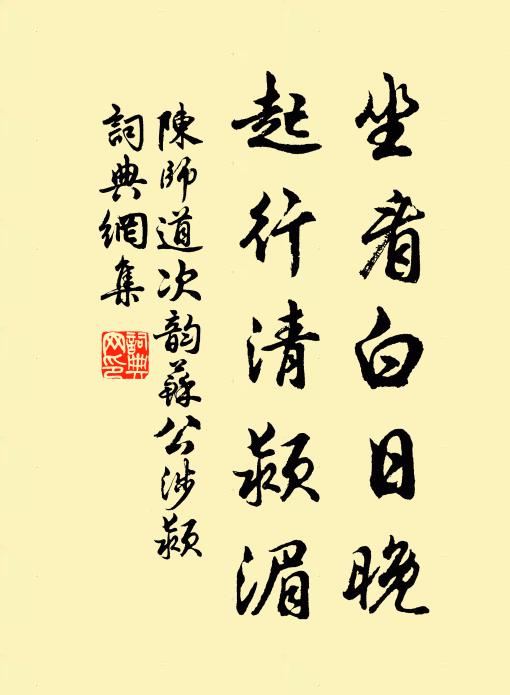 坐看白日晚
起行清颍湄
陳師道次韵蘇公涉颍
詞典網集
詞典网印